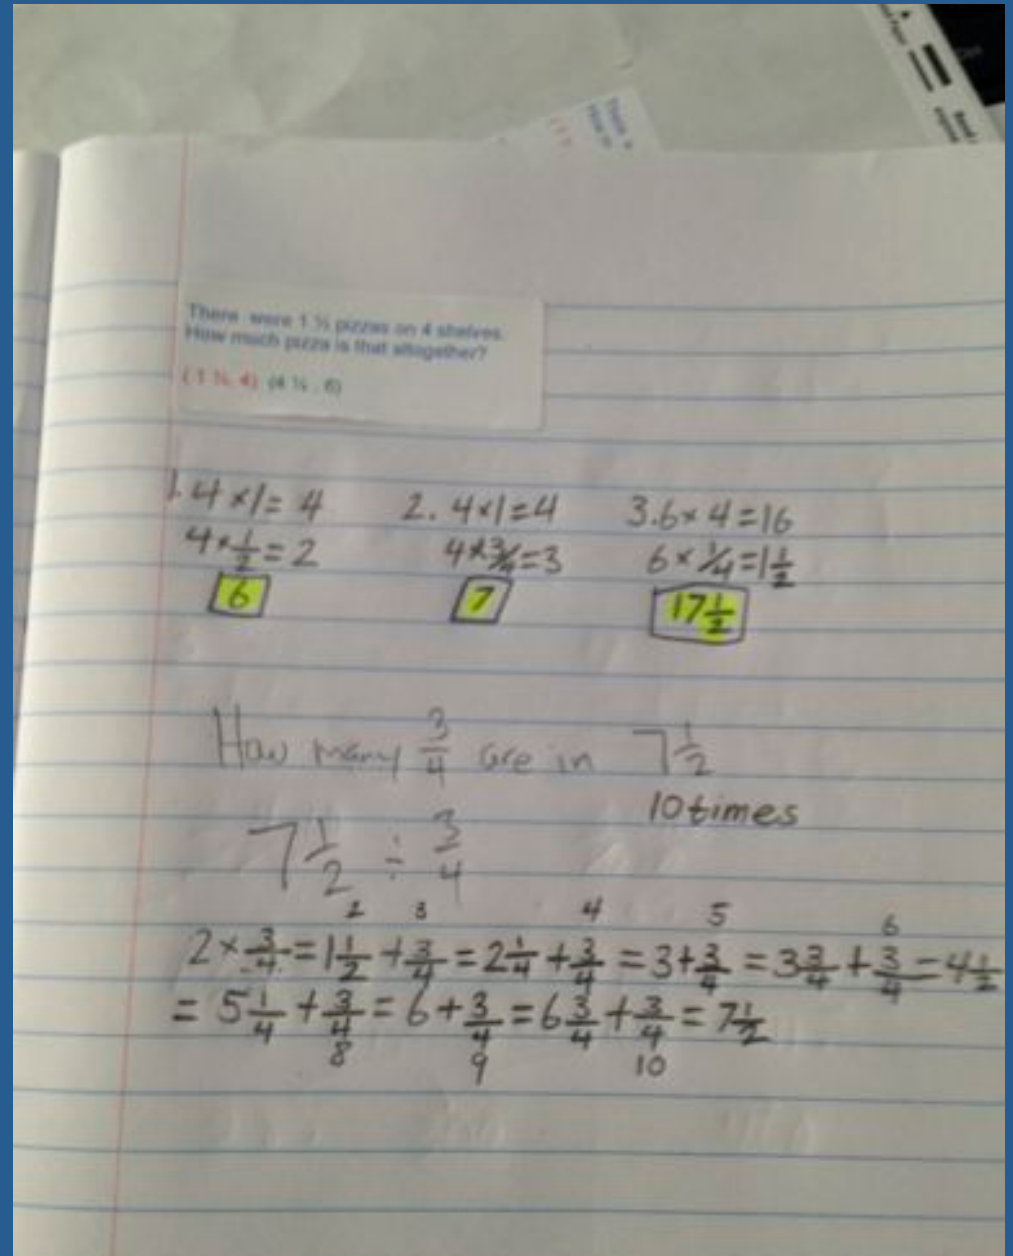 There were 1 ½ pizzas on 4 shelves.
How much pizza is that altogether?
(4 ¼ , 6)
1. 4×1=4
4×1/2=2
6
2. 4×1=4
4×3/4=3
7
3. 6×4=16
6×1/4=1 1/2
17 1/2
How many 3/4 are in 7 1/2
10 times
7 1/2 ÷ 3/4
2 3 4 5 6
2×3/4=1 1/2+3/4=2 1/4+3/4=3+3/4=3 3/4+3/4=4 1/2
=5 1/4+3/4=6+3/4=6 3/4+3/4=7 1/2
8 9 10